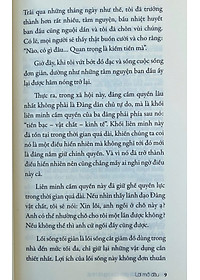 Trải qua những tháng ngày như thế, tôi đã trưởng
thành hơn rất nhiều, tâm nguyện, bầu nhiệt huyết
ban đầu cũng nguội dần và tôi đã chôn vùi chúng.
Có lẽ, mọi người sẽ thấy thật buồn cười và cho rằng:
"Nào, có gì đâu... Quan trọng là kiếm tiền mà".
Giờ đây, khi tôi vứt bớt đồ đạc và sống cuộc sống
đơn giản, dường như những tâm nguyện ban đầu ấy
lại được hâm nóng trở lại.
Thực ra, trong xã hội này, đảng cầm quyền lâu
nhất không phải là Đảng dân chủ tự do, mà là khối
liên minh cầm quyền của ba đảng phái phía sau nó:
"tiền bạc – vật chất – kinh tế". Khối liên minh này
cầm quyền đã tồn tại trong
thời gian quá dài, khiến chúng ta coi
nó là một điều hiển nhiên đến nỗi từ đó mới
đảng nắm giữ chính quyền. Và vì nó đã trở thành
điều hiển nhiên nên cũng chẳng mấy ai nghi ngờ điều
này cả.
Liên minh cầm quyền này đã giữ ghế quyền lực
trong thời gian quá dài. Nếu nhìn thấy lãnh đạo Đảng
vật chất, tôi sẽ nói: Xin lỗi, anh nghỉ chút có được chứ ạ?
Anh có thể nhường chỗ cho tôi một lần được không?
Nếu không thì anh cứ ngồi đấy cũng được.
Lối sống tối giản là lối sống cắt giảm đồ dùng trong
nhà đến mức tối đa, chỉ giữ lại những vật dụng cần
thiết nhất. Lợi ích của lối sống này không đơn thuần
Lời mở đầu 9